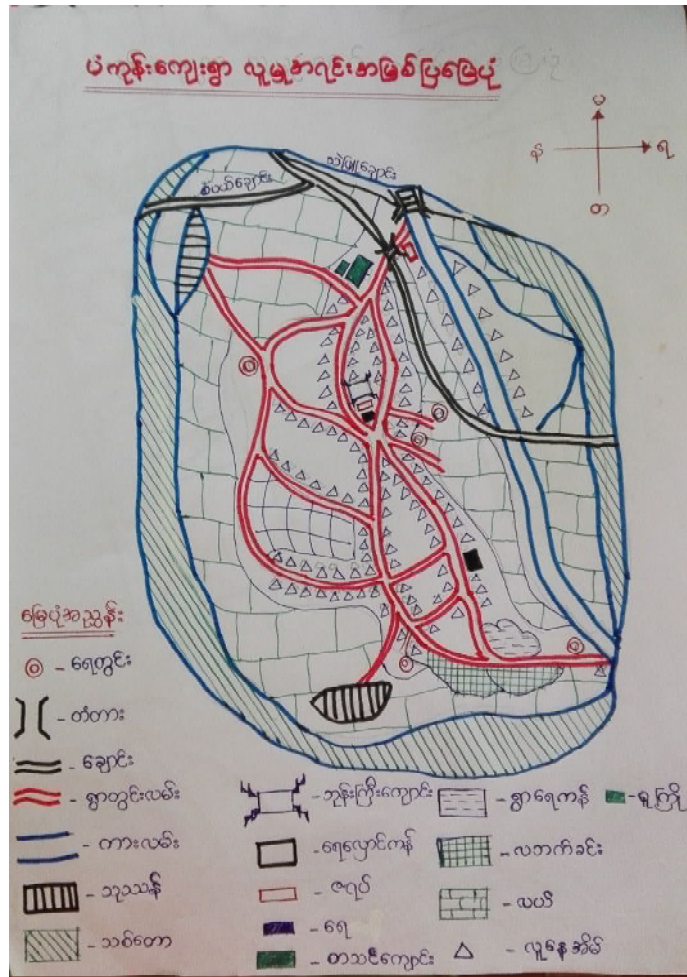 ပံကုန်းကျေးရွာ လူမှုအရင်းအမြစ်ပြမြေပုံ
မ
န
ရ
တ
စံပယ်ချောင်း
သဲဖြူချောင်း
မြေပုံအညွှန်း
- ရေတွင်း
- တံတား
- ချောင်း
- ရွာတွင်းလမ်း
- ကားလမ်း
- သုဿန်
- သစ်တော
- ဘုန်းကြီးကျောင်း
- ရေလှောင်ကန်
- ဇရပ်
- ရေ
- စာသင်ကျောင်း
- ရွာရေကန်
- လဘက်ခင်း
- လယ်
- လူနေအိမ်
- မူကြို